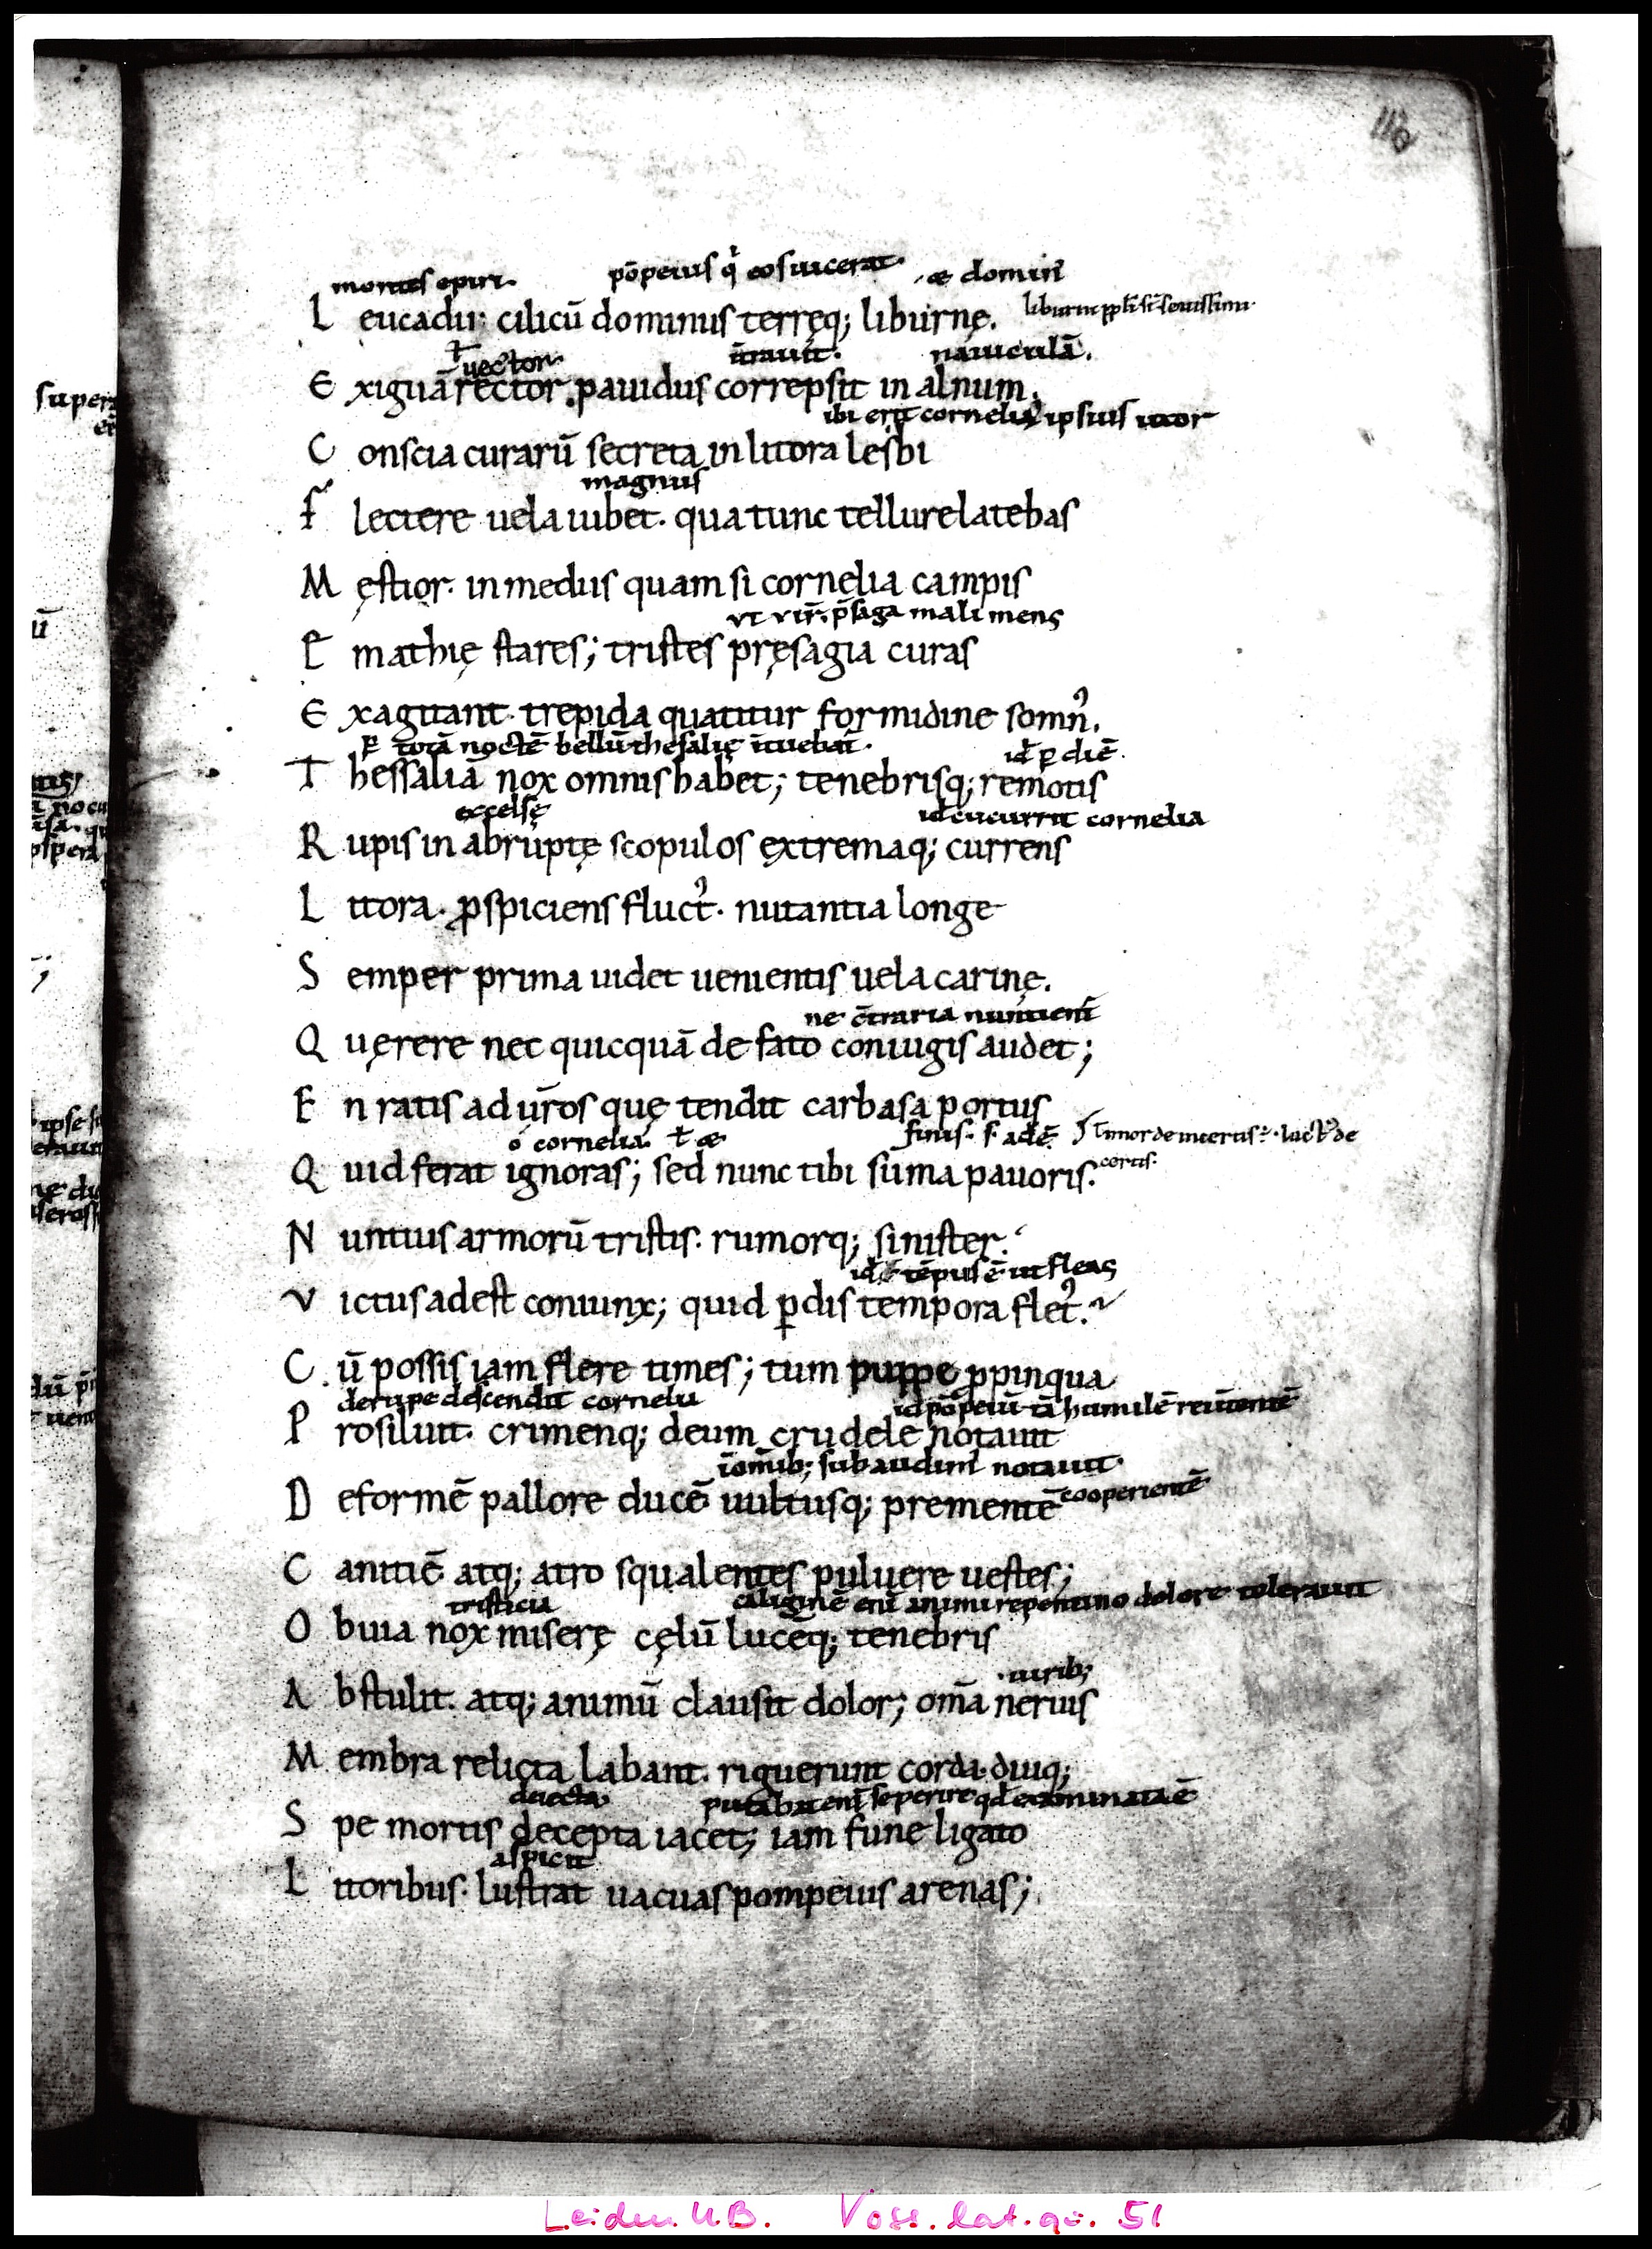 118
montes epiri. pōpeius q' eos uicerat. .æ domini
L eucadii· cilicū dominus terręq; liburnę. liburni
ł uector ītrauit. nauiculā.
E xiguā rector. pauidus correpsit in alnum.
ibi erat cornelia ipsius uxor
C onscia curarū secreta in littora lesbi
magnus
F lectere uela iubet. qua tunc tellure latebas
M ęstior. in mediis quam si cornelia campis
p̄saga mali mens
E mathię stares; tristes pręsagia curas
E xagitant. trepida quatitur formidine somn᾽.
totā noctē bellū thesalię ītuebat̄. id̄ p̱ diē.
T hessaliā nox omnis habet; tenebrisq; remotis
excelsę id̄ cucurrit cornelia
R upis in abruptę scopulos extremaq; currens
L ittora. ꝓspiciens fluct᾽. nutantia longe
S emper prima uidet uenientis uela carinę.
ne ꝯ̄traria nuntient̄
Q uęrere nec quicquā de fato coniugis audet;
E n ratis ad ūros quę tendit carbasa portus
o cornelia. ł æ finis.
Q uid ferat ignoras; sed nunc tibi suma pauoris. certis.
N untius armorū tristis. rumorq; sinister.
id̄ ē tēpus ē ut fleas
V ictus adest coniunx; quid p̱dis tempora flet᾽.
C ū possis iam flere times; tum puppe ꝓpinqua
de rupe descendit cornelia id̄ pōpeiū tā humilē
P rosiluit. crimenq; deum crudele notauit
īomīb; subaudim̄ notauit.
D eformē pallore ducē uultusq; prementē cooperientē
C anitiē atq; atro squalentes puluere uestes;
tristicia caliginē eni animi repentino dolore tolerauit
O buia nox miserę cęlū lucēq; tenebris
.uirib;
A bstulit. atq; animū clausit dolor; om̄a neruis
M embra relicta labant. riguerunt corda. diuq;
deiecta. putabat eni se perire qd̄ exanimata ē
S pe mortis decepta iacet; iam fune ligato
aspicit
L ittoribus. lustrat uacuas pompeius arenas;
Leiden UB. Voss. lat. qu. 51